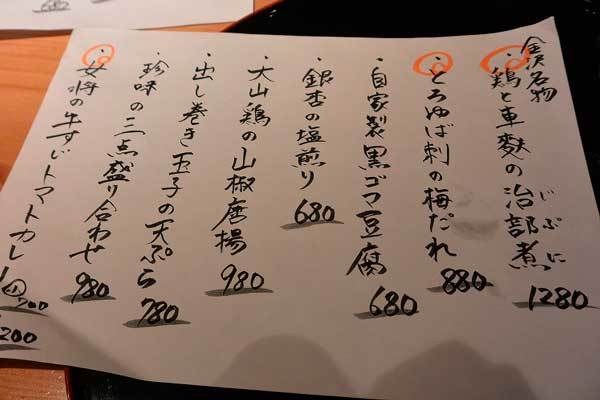 金沢名物
・鶏と車麩の治部煮 1280
じぶに
・とろゆば刺の梅だれ 880
・自家製黒ゴマ豆腐 680
・銀杏の塩煎り 680
・大山鶏の山椒唐揚 980
・出し巻き玉子の天ぷら 780
・珍味の三点盛り合わせ 980
・女将の牛すじトマトカレー
700
200